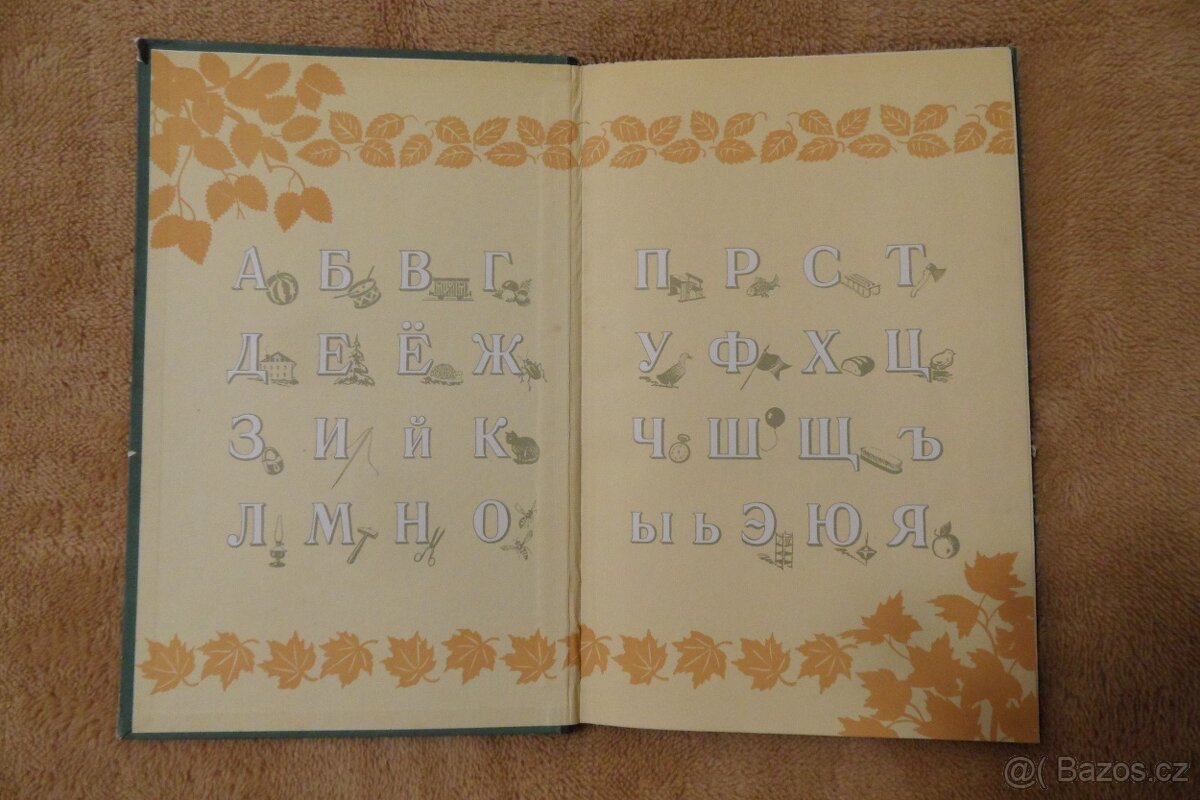 А Б В Г
Д Е Ё Ж
З И й К
Л М Н О
П Р С Т
У Ф Х Ц
Ч Ш Щ ъ
ы ь Э Ю Я
@( Bazos.cz